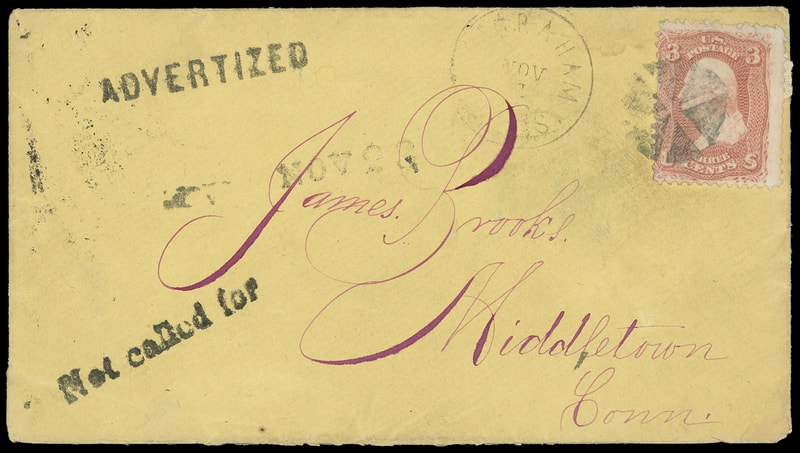 ADVERTIZED
NOV
3 U.S. 3
POSTAGE
THREE
CENTS
NOV 26
James Brooks.
Middletown
Conn.
Not called for